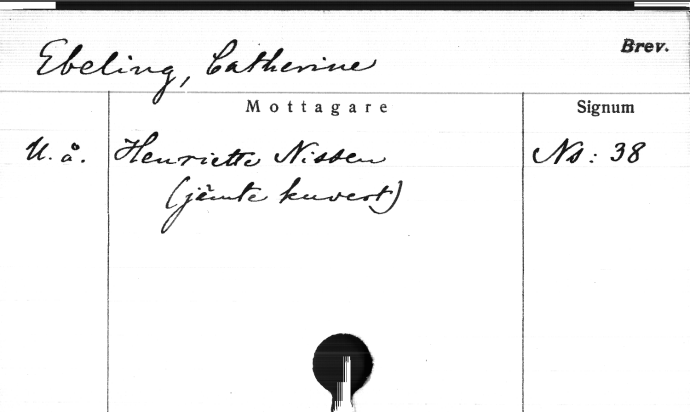 Ebeling, Catherine
Brev.
Mottagare
Signum
U. å. Henriette Nissen Ns: 38
(jämte kuvert)